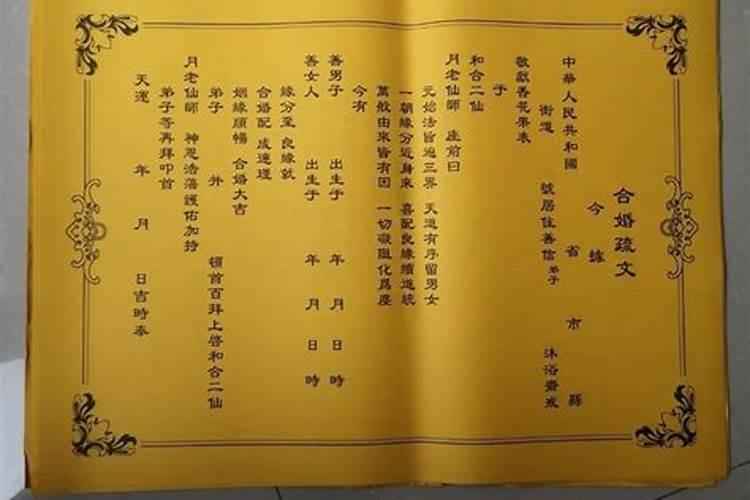 合婚疏文
今據
中華人民共和國 省 市 縣
街道 號居住善信弟子 沐浴齋戒
敬獻香花果表
于
和合二仙
月老仙師 座前曰
元始法旨遍三界 天道有序留男女
一朝緣分近身來 喜配良緣續道統
萬般由來皆有因 一切礙阻化爲塵
今有
善男子 出生于 年 月 日 時
善女人 出生于 年 月 日 時
緣分至 良緣就
合婚配 成連理
姻緣順暢 合婚大吉
弟子 并 頓首百拜上啓和合二仙
月老仙師 神恩浩蕩護佑加持
弟子等再拜叩首
天運 年 月 日吉時奉